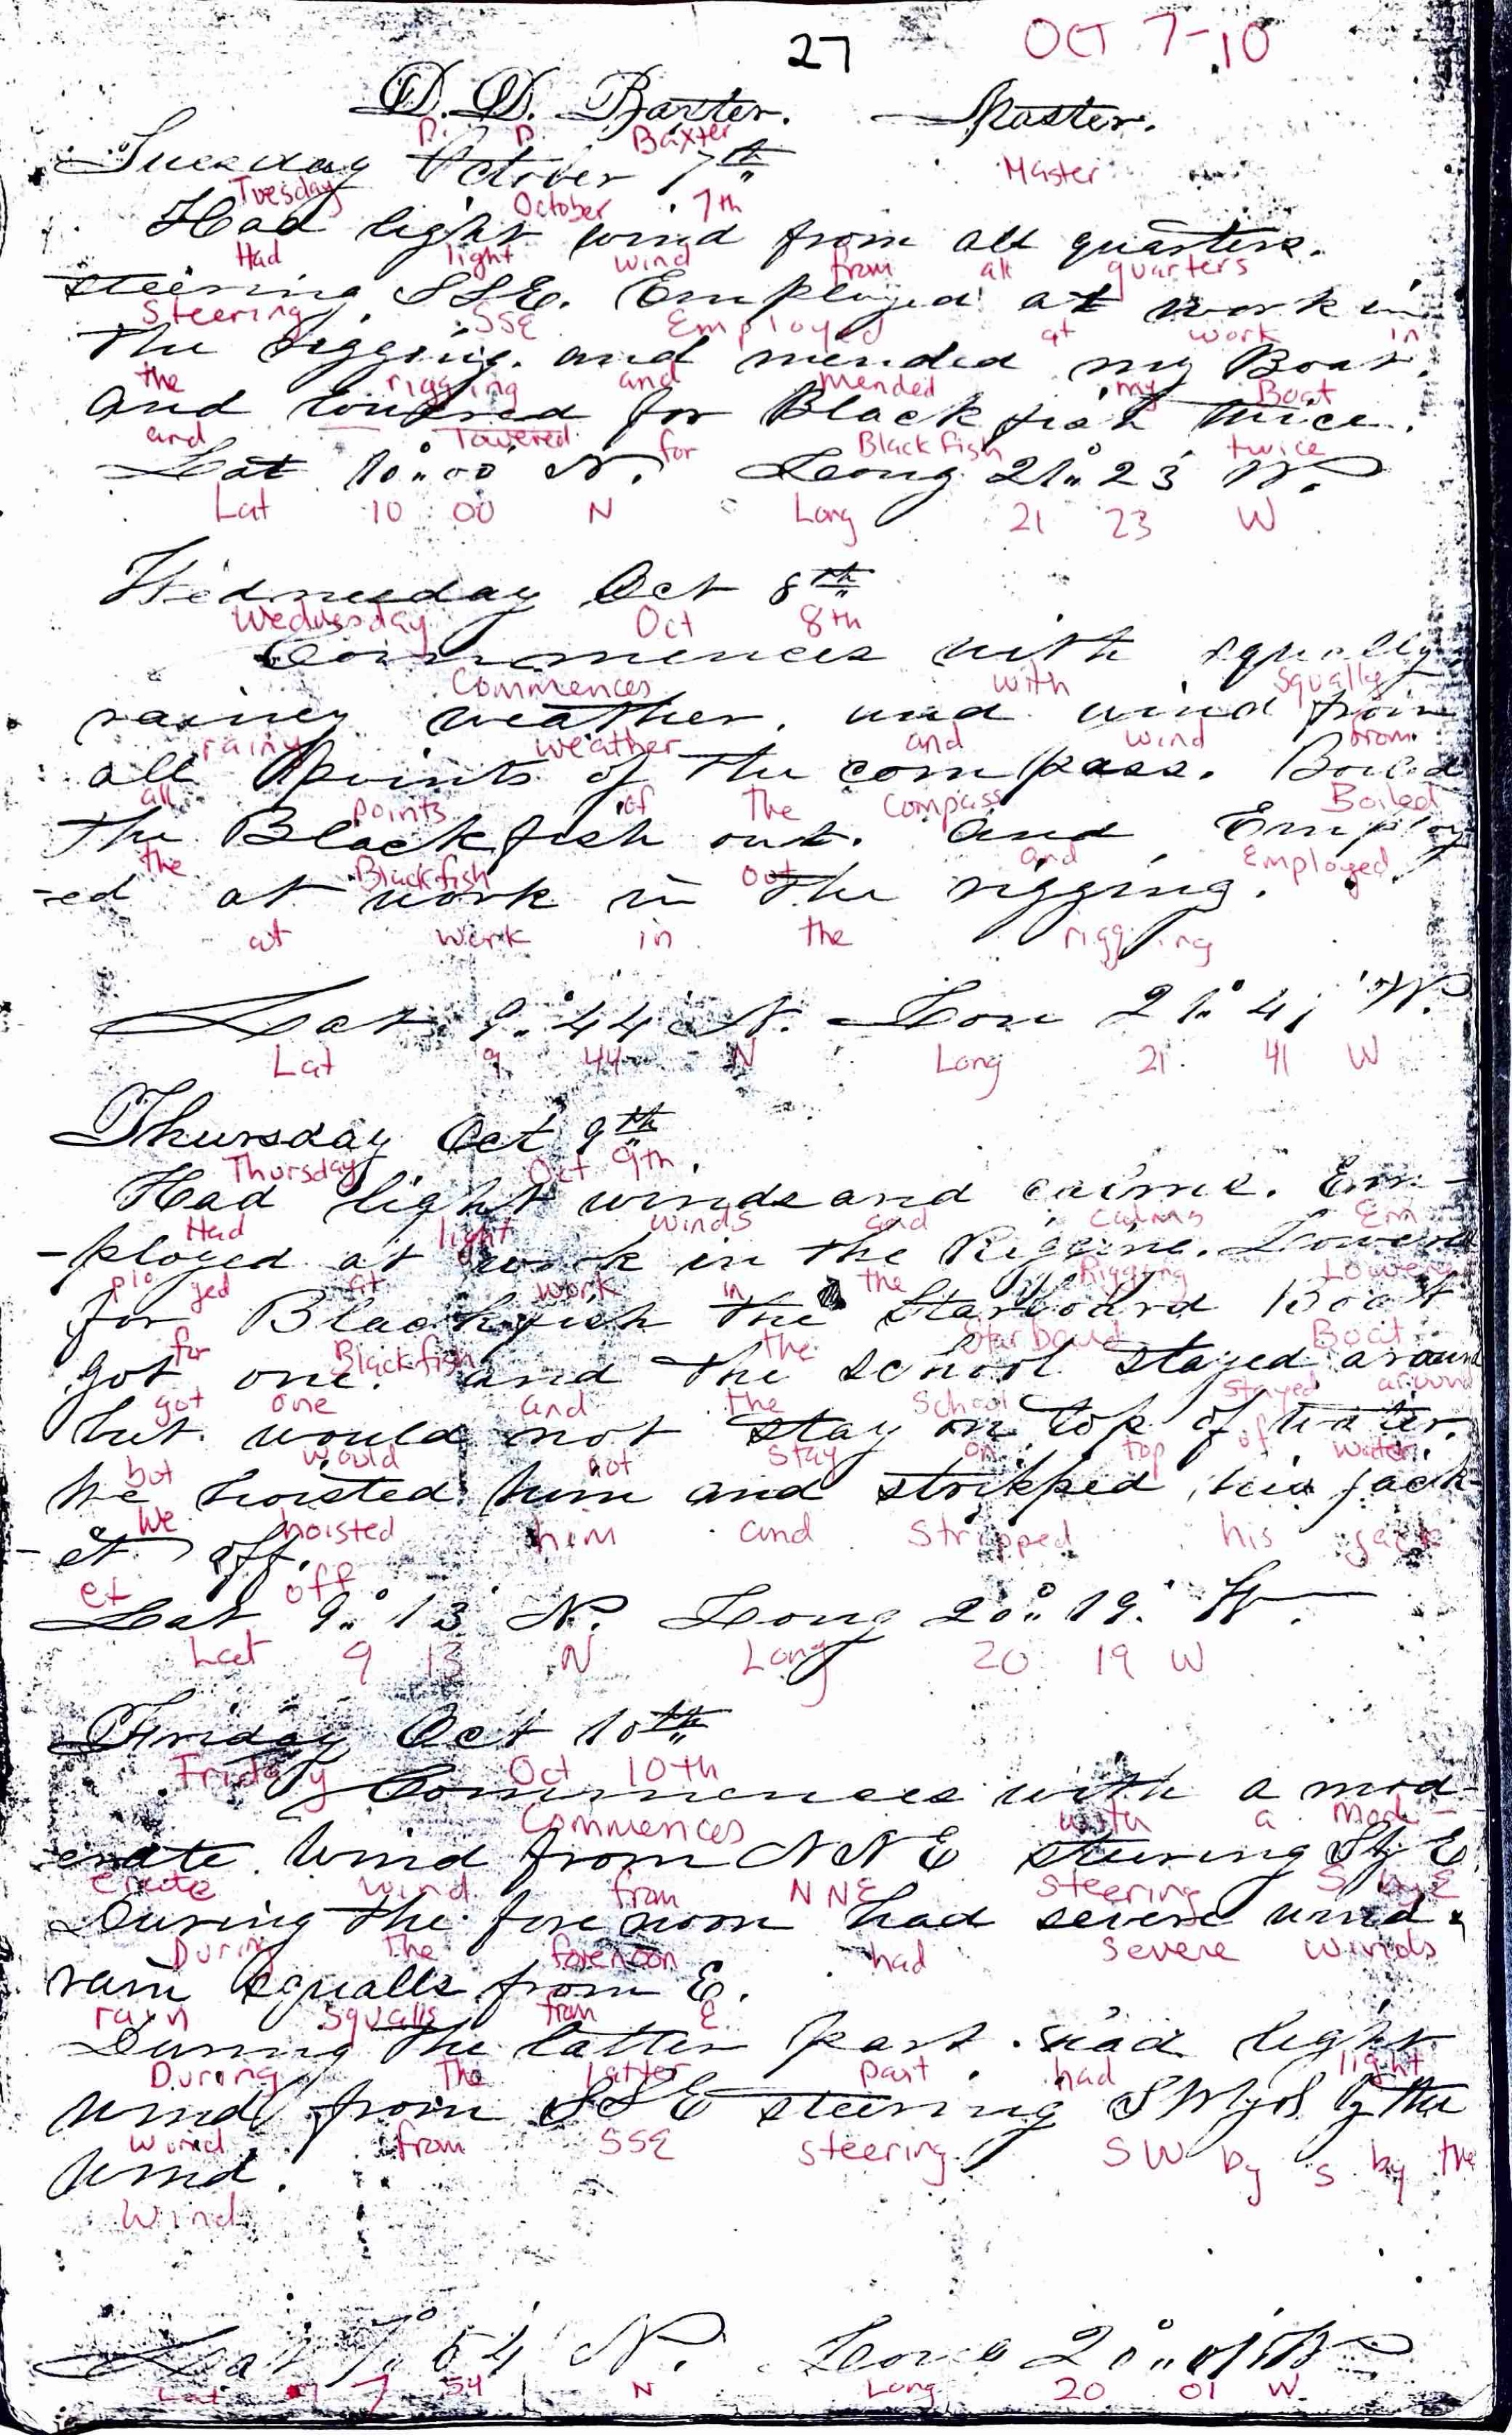 27 OCT 7-10
D. D. Baxter. Master.
D. D. Baxter
Master
Tuesday October 7th
Tuesday October 7th
Had light wind from all quarters.
Had light wind from all quarters
steering SSE. Employed at work in
Steering SSE Employed at work in
the rigging. and mended my Boat.
the rigging and mended my Boat
and lowered for Blackfish twice.
and lowered for Blackfish twice
Lat 10°.00' N. Long 21°.23' W.
Lat 10 00 N Long 21 23 W
Wednesday Oct 8th
Wednesday Oct 8th
Commences with squally
Commences with Squally
rainey weather. and wind from
rainy weather and wind from
all points of the compass. Boiled
all points of the compass Boiled
the Blackfish out. and Employ
the Blackfish out and Employed
-ed at work in the rigging.
at work in the rigging
Lat 9°.44' N. Lon 21°.41' W.
Lat 9 44 N Long 21 41 W
Thursday Oct 9th
Thursday Oct 9th.
Had light winds and calms. Em-
Had light winds and calms Em
-ployed at work in the Rigging. Lowered
ployed at work in the Rigging Lowered
for Blackfish the Starboard Boat
for Blackfish the Starboard Boat
got one. and the school stayed around
got one and the School stayed around
but would not stay on top of water.
but would not stay on top of water
We hoisted him and stripped his jack-
We hoisted him and Stripped his jack
-et off.
et off
Lat 9°.13' N. Long 20°.19' W.
Lat 9 13 N Long 20 19 W
Friday Oct 10th
Friday Oct 10th
Commences with a mod-
Commences with a mod-
erate wind from NNE steering S by E
erate wind from NNE steering S by E
During the forenoon had severe wind &
During the forenoon had severe winds
rain squalls from E.
rain squalls from E.
During the latter part had light
During The latter part had light
wind from SSE steering SW by S by the
wind from SSE steering SW by S by the
wind.
Wind
Lat 7°.54' N. Long 20°.01' W
Lat 7 54 N Long 20 01 W